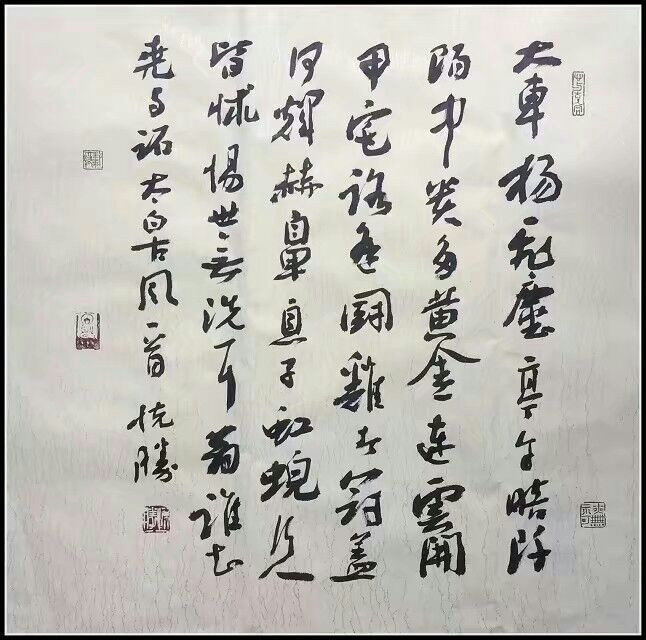 大車揚飛塵亭午暗阡
陌中貴多黄金連雲開
甲宅路逢鬪雞者冠蓋
何輝赫鼻息干虹蜺行人
皆怵惕世無洗耳翁誰知
堯与跖太白古風一首勝